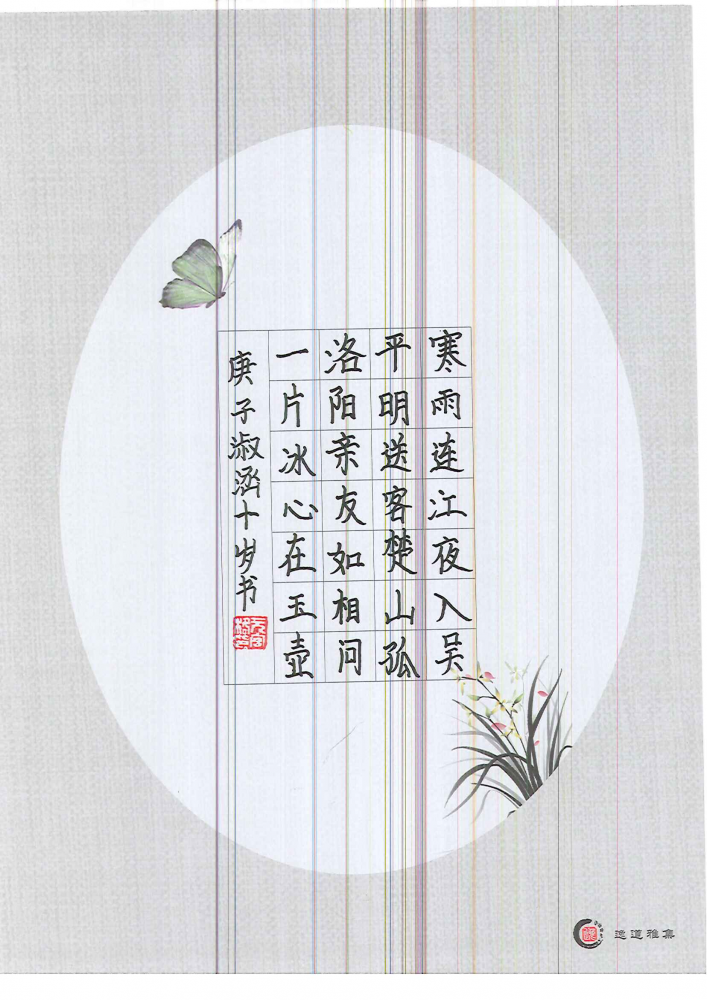 寒雨连江夜入吴
平明送客楚山孤
洛阳亲友如相问
一片冰心在玉壶
庚子淑涵十岁书
逸道雅集